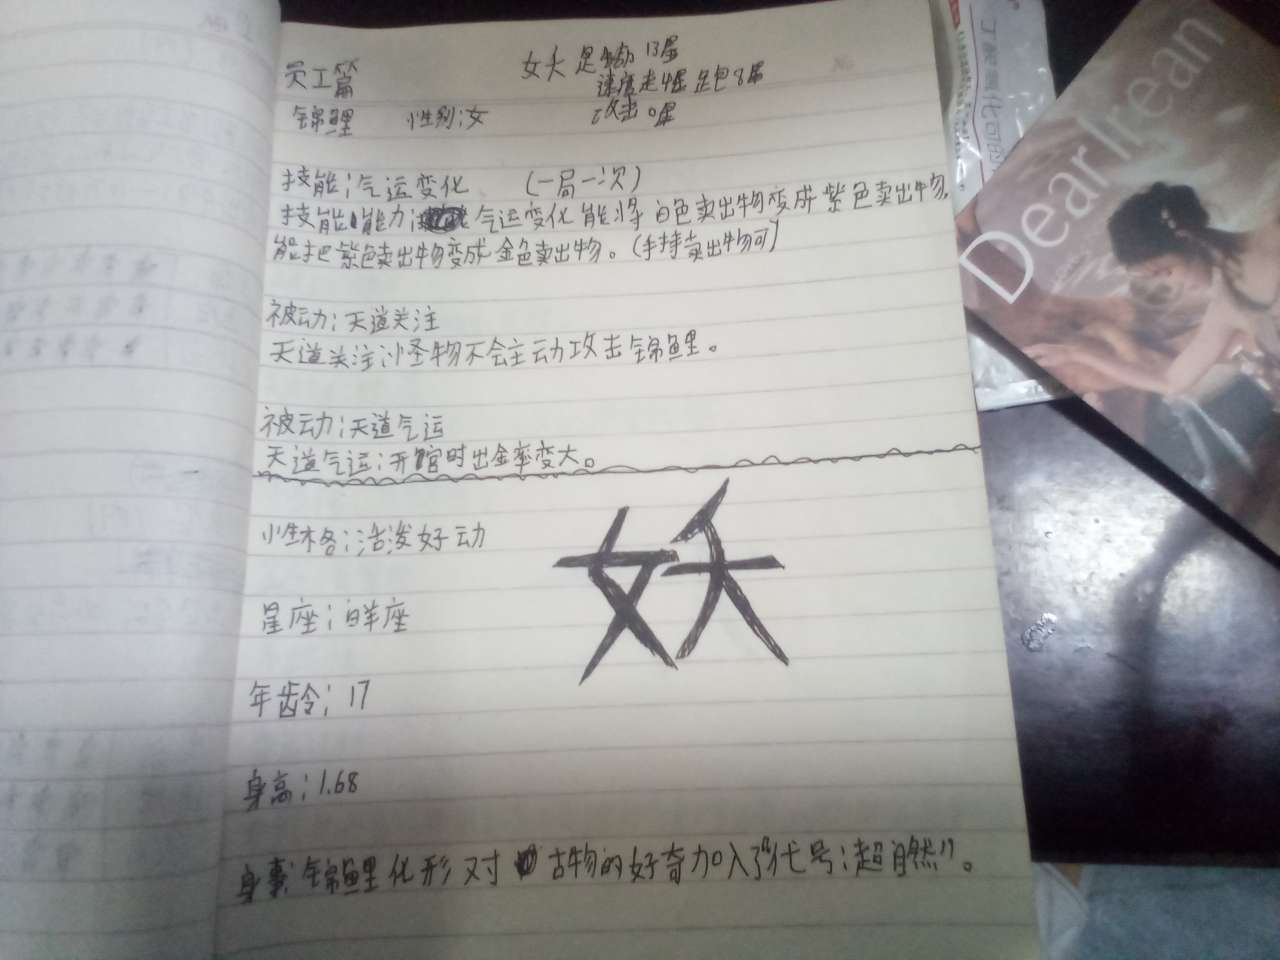 员工篇
女夭 是 13星
速度 8星
攻击 0星
锦鲤 性别:女
技能:气运变化 (一局一次)
技能能力: 气运变化能将白色卖出物变成紫色卖出物,
能把紫色卖出物变成金色卖出物。(手持卖出物可)
被动:天道关注
天道关注:怪物不会主动攻击锦鲤。
被动:天道气运
天道气运:开官时出金率变大。
性格:活泼好动
妖
星座:白羊座
年齿令:17
身高:1.68
身事:锦鲤化形对古物的好奇加入了“代号:超自然”。
Dear Irean